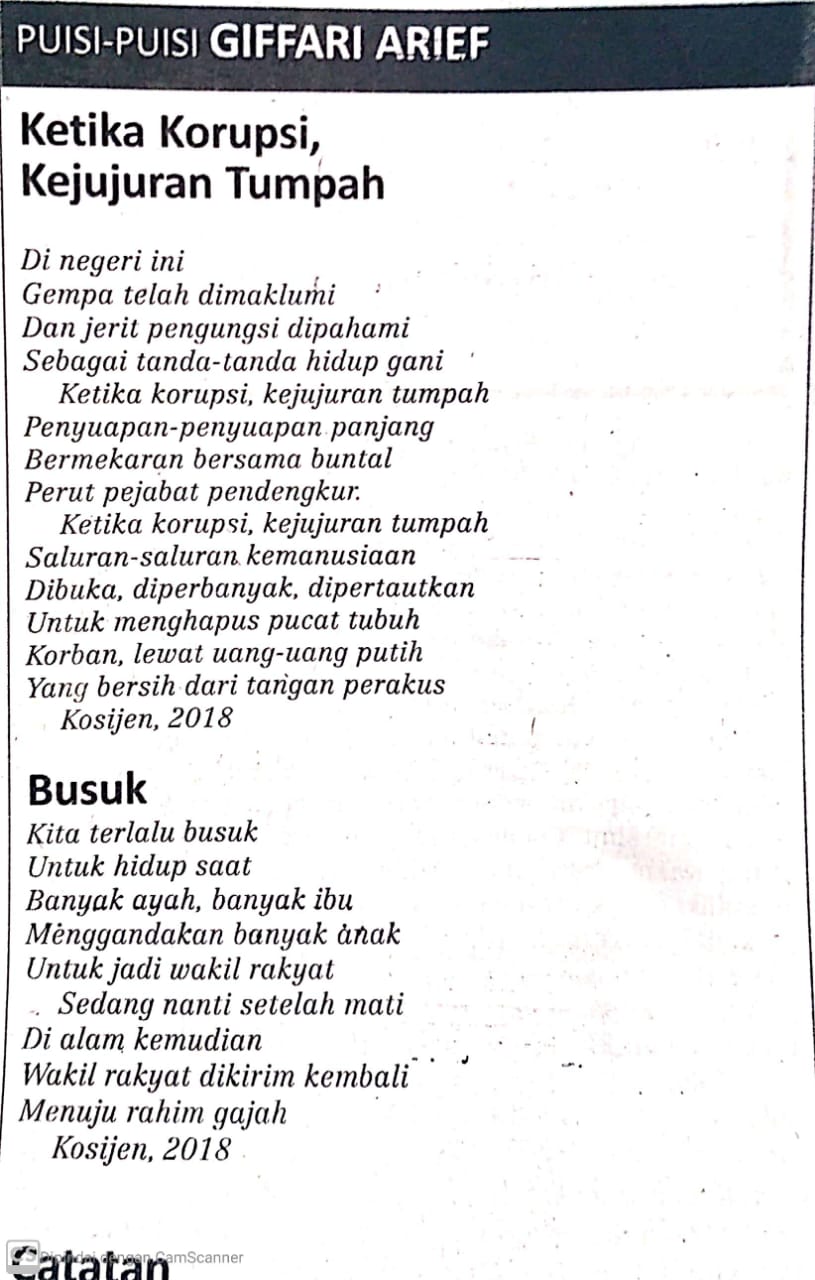 PUISI-PUISI GIFFARI ARIEF
Ketika Korupsi,
Kejujuran Tumpah
Di negeri ini
Gempa telah dimaklumi
Dan jerit pengungsi dipahami
Sebagai tanda-tanda hidup gani
Ketika korupsi, kejujuran tumpah
Penyuapan-penyuapan panjang
Bermekaran bersama buntal
Perut pejabat pendengkur.
Ketika korupsi, kejujuran tumpah
Saluran-saluran kemanusiaan
Dibuka, diperbanyak, dipertautkan
Untuk menghapus pucat tubuh
Korban, lewat uang-uang putih
Yang bersih dari tangan perakus
Kosijen, 2018
Busuk
Kita terlalu busuk
Untuk hidup saat
Banyak ayah, banyak ibu
Menggandakan banyak anak
Untuk jadi wakil rakyat
Sedang nanti setelah mati
Di alam kemudian
Wakil rakyat dikirim kembali
Menuju rahim gajah
Kosijen, 2018
Catatan
CS Dipindai dengan CamScanner